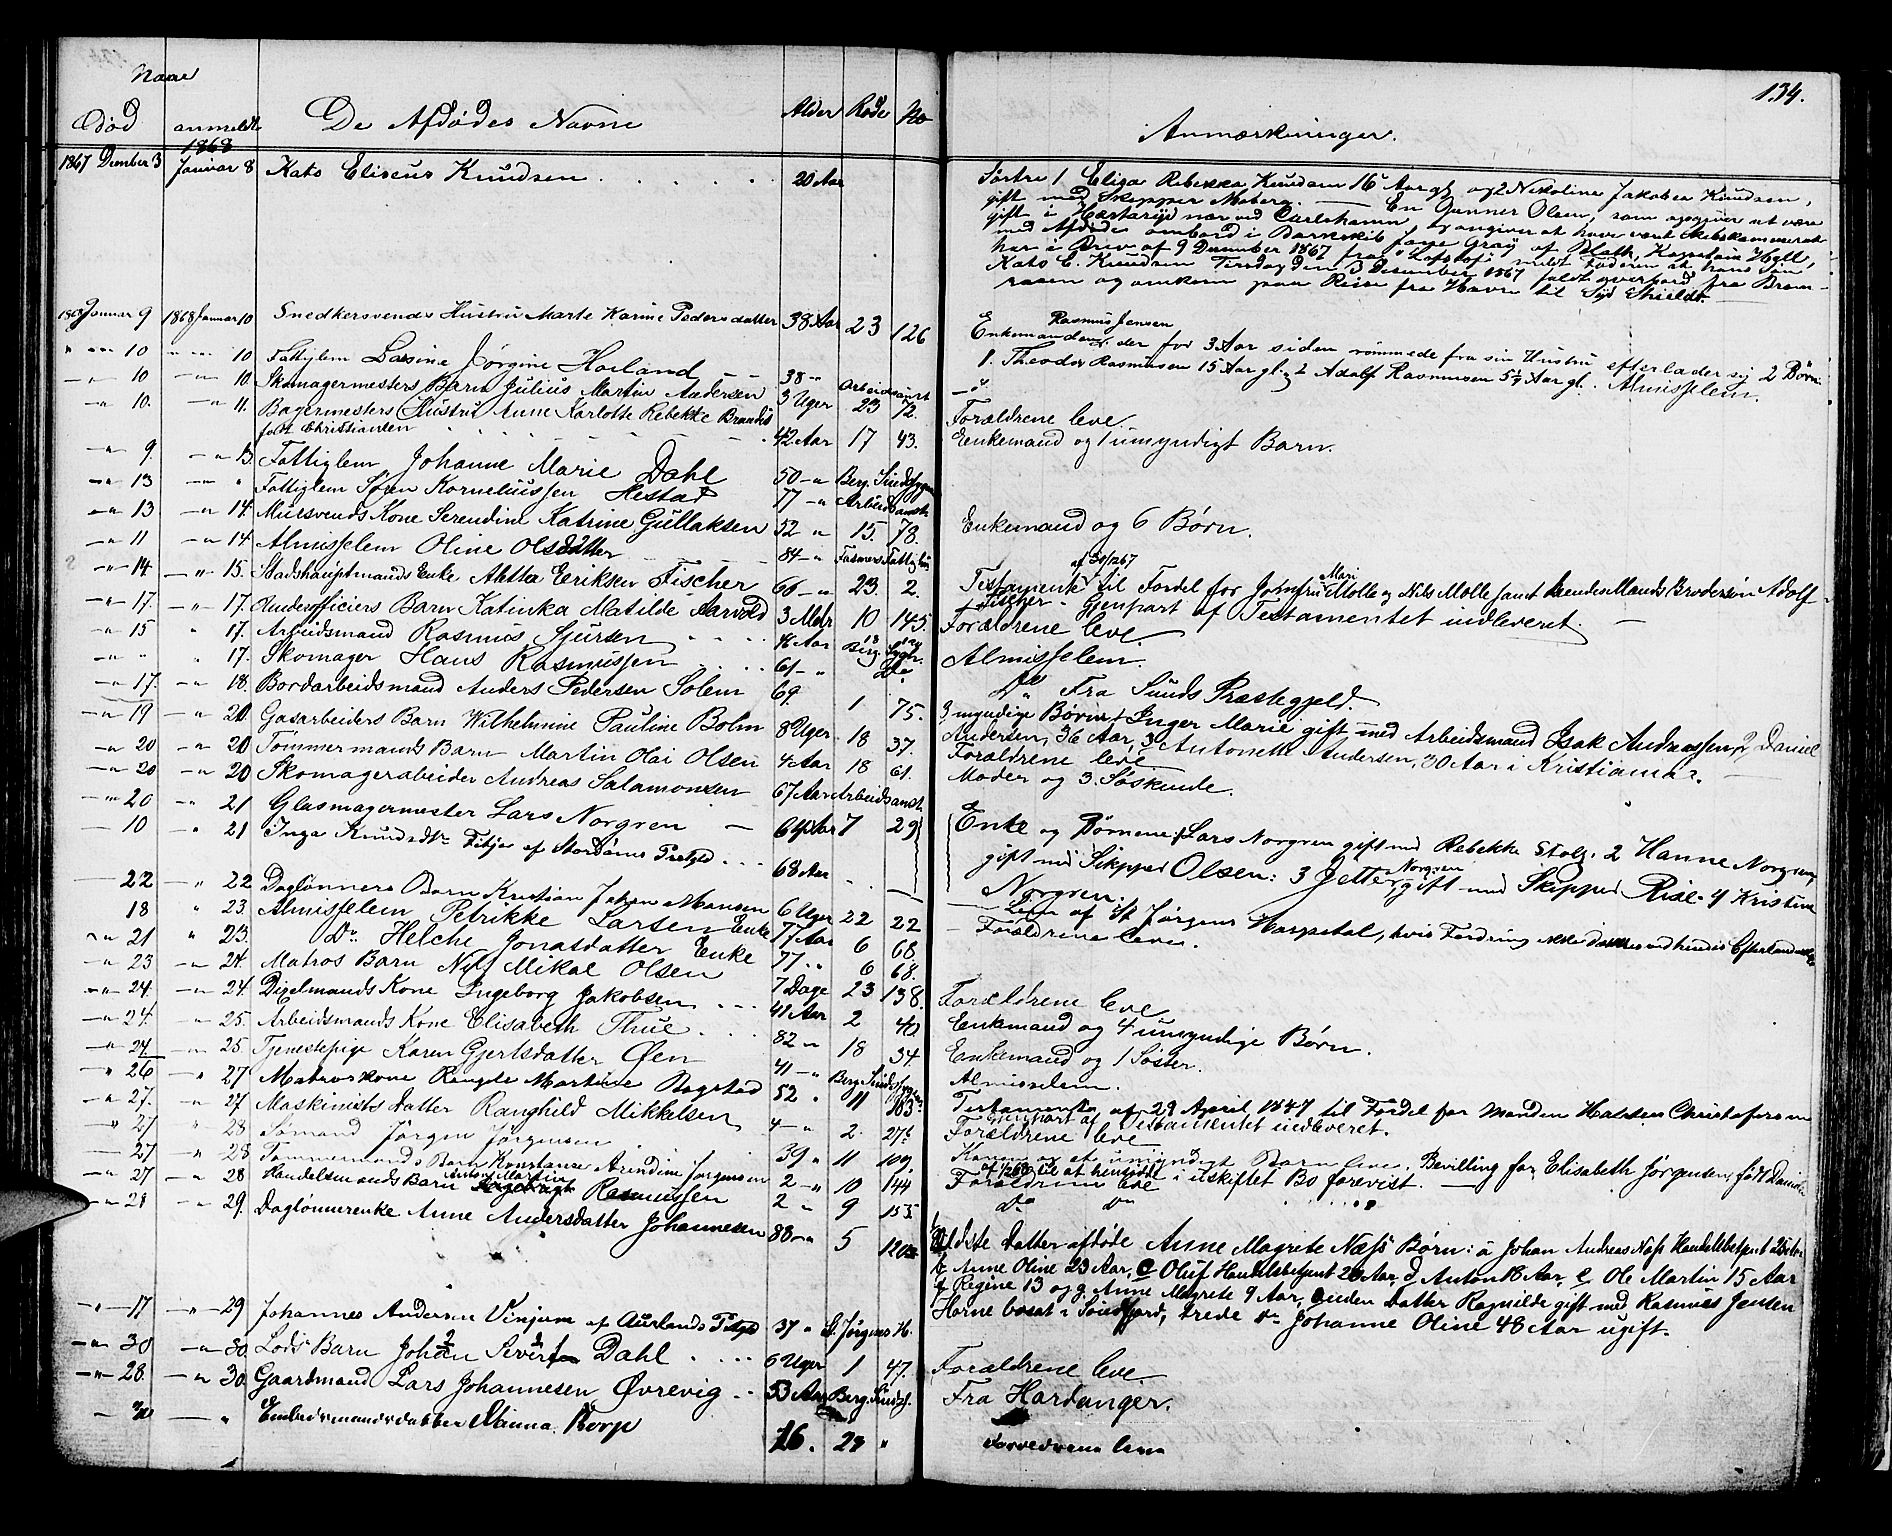 134.
Naar
Død anmeldt De Afdødes Navne Alder Rode No Anmærkninger.
1868
1867 Dcember 3 Januar 8 Kato Eliseus Knudsen 20 Aar
Søstre 1 Elisa Rebekka Knudsen 16 Aar gl og 2 Nikoline Jakobea Knudsen,
gift med Skipper Moberg. — En Gunner Olsen, som opgiver at være
gift i nær ved Carlshamn, og angiver at have været Skibskammerat
med Afdøde ombord i Barkskib Jane Gray af Kaptein
har i Brev af 9 December 1867 fra meldt Faderen at hans Søn
Kato E. Knudsen Tirsdag den 3 December 1867 faldt overbord fra Bram-
raaen og omkom paa Reise fra Havre til Syd Shields.
1868 Januar 9 1868 Januar 10 Snedkersvends Hustru Marte Karine Pedersdatter 38 Aar 23 126
Rasmus Jensen
Enkemanden, der for 3 Aar siden rømmede fra sin Hustru efterlader sig 2 Børn
1. Theodor Rasmussen 15 Aar gl. og 2 Adolf Rasmussen 5½ Aar gl.
" 10 " 10 Fattiglem Lasine Jørgine Hoiland 38 " Arbeidsanst Almisselem.
" 10 " 10. Skomagermesters Barn Julius Martin Andersen 3 Uger 23 72. Forældrene leve
" 10. " 11. Bagermesters Hustru Anne Karlotte Rebekke Brandis
født Christiansen 42 Aar 17 43. Enkemand og 1 umyndigt Barn.
" 9. " 13. Fattiglem Johanne Marie Dahl 50 " Berg. Sindssygeas
" 13 " " Fattiglem Søren Korneliussen Hestad 77 " Arbeidsanst.
" 13 " 14. Mursvends Kone Serendine Katrine Gullaksen 52 " 15. 78. Enkemand og 6 Børn.
" 11 " 14. Almisselem Oline Olsdatter 84 " Fasmers Fattighus
" 14 " 15. Stadshauptmands Enke Aletta Eriksen Fischer 66 " 23. 2.
af 30/1267
Testament til Fordel for Jomfru Mari Molle og Nils Molle samt hendes Mands Brodersøn Adolf
Fischer - Gjenpart af Testamentet indleveret. —
" 17. " 17. Underofficiers Barn Katinka Matilde Aarvold 3 Mdr 10 145. Forældrene leve
" 15 " 17. Arbeidsmand Rasmus Sjursen 46 Aar 18 129 Almisselem.
" " " 17. Skomager Hans Rasmussen 61 " Berg. Sygh. Do Fra Sunds Præstegjeld.
" 17. " 18. Bordarbeidsmand Anders Pedersen Solem 69. 1 75.
3 myndige Børn 1 Inger Marie gift med Arbeidsmand Isak Andreassen, 2 Daniel
Andersen, 36 Aar, 3 Antonette Andersen, 30 Aar i Kristiania.
" 19 " 20. Gasarbeiders Barn Wilhelmine Pauline Bolm 8 Uger 18 37. Forældrene leve
" 20 " 20. Tømmermands Barn Martin Olai Olsen 4 Aar 18 61. Moder og 3 Søskende.
" 20 " 20 Skomagerarbeider Andreas Salamonsen 67 Aar Arbeidsanst.
" 20 " 21 Glasmagermester Lars Norgren — 64 Aar 7 29
Enke og Børnene: 1 Lars Norgren gift med Rebekke Stolz. 2 Hanne Norgren,
gift med Skipper Olsen: 3 Jette Norgren gift med Skipper Riise. 4 Kristine
Norgren.
10 " 21 Inga Knudsdtr Fitje af Stordøens Prstgjd 68 Aar
Lem af St Jørgens Hospital, hvis Fordring
22 " 22 Dagløners Barn Kristian Johan Monsen 6 Uger 22 22 Forældrene leve.
18 " 23. Almisselem Petrikke Larsen Enke 77 Aar 6 68.
" 21 " 23. Do Helche Jonasdatter Enke 77 " 6 68.
" 23 " 24. Matros Barn Nils Mikal Olsen 7 Dage 23 138. Forældrene leve
" 24. " 24. Digelmands Kone Ingeborg Jakobsen 41 Aar 2 40 Enkemand og 4 umyndige Børn.
" 24. " 25. Arbeidsmands Kone Elisabeth Thue 82 " 18 34. Enkemand og 1 Søster.
" 24 " 25. Tjenestepige Karen Gjertsdatter Øen 41 " Berg. Sindssygeas Almisselem.
" 26 " 27 Matroskone Rangele Martine Bogstad 52 " 11 163
Testamente af 29 April 1847 til Fordel for Manden Halsten Christofersen
Gjenpart af Testamentet indleveret.
" 27. " 27. Maskinists Datter Ranghild Mikkelsen 4 " 2. 27b Forældrene leve
" 27 " 28 Sømand Jørgen Jørgensen 39 " 11 109.
Konen og et umyndigt Barn leve. Bevilling for Elisabeth Jørgensen, født Daniels
af til at hensidde i uskiftet Bo forevist.
27 " 28 Tømmermands Barn Konstanse Arindine Jørgensen 2 " 10 144 Forældrene leve
" 27 " 28 Handelsmands Barn Martin Rasmussen 2 " 9 155 Do Do
" 28 " 29. Daglønnerenke Anne Andersdatter Johannesen 88 " 5 120
Ældste Datter afdøde Anne Magrete Næss Børn: a Johan Andreas Næss Handelsbetjent 25 Aar
b Anne Oline 23 Aar, c Oluf Handelsbetjent 20 Aar, d, Anton 18 Aar, e, Ole Martin 15 Aar
f Regine 13 og g, Anne Magrete 9 Aar, anden Datter Ragnilde gift med Rasmus Jensen
Horne bosat i Søndfjord, tredie Do Johanne Oline 48 Aar ugift.
" 17 " 29 Johannes Andersen Vinjum af Aurlands Prstgjd 37 " St. Jørgens H.
" 30 " 30. Lods Barn Johan Severin Dahl 6 Uger 1 47. Forældrene leve
" 28. " 30. Gaardmand Lars Johannesen Øvrevig 53 Aar Berg. Sindsf. Fra Hardanger.
" " Embedsmandsdatter Minna Korp 16. 23 " Forældrene leve